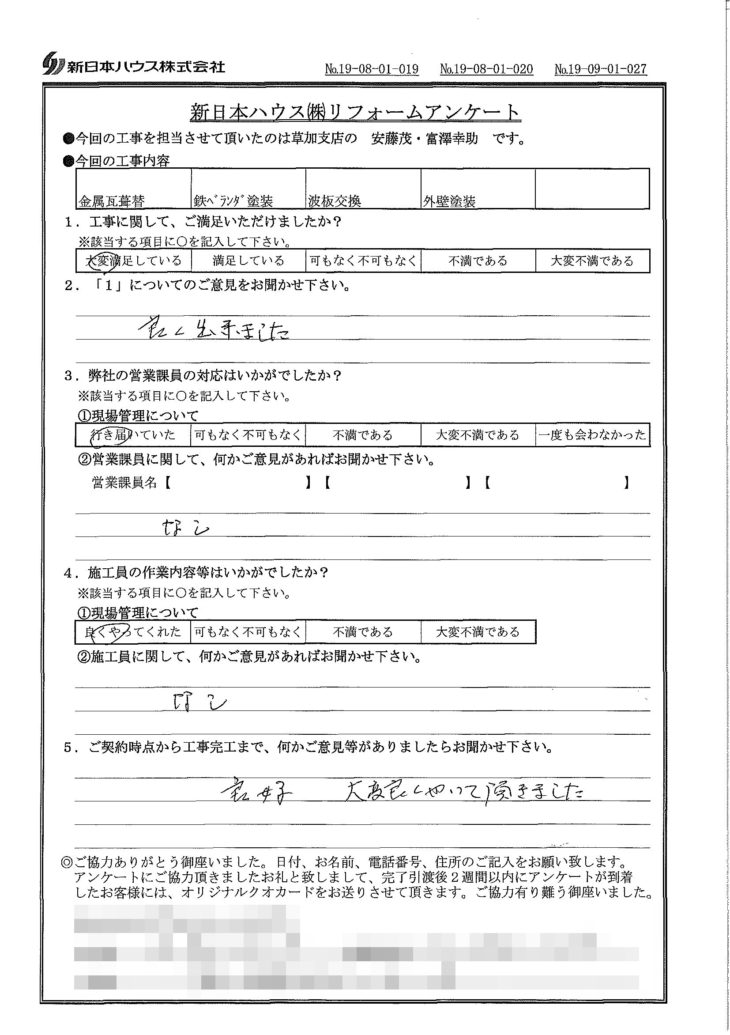 新日本ハウス株式会社 №19-08-01-019 №19-08-01-020 №19-09-01-027
新日本ハウス㈱リフォームアンケート
●今回の工事を担当させて頂いたのは草加支店の 安藤茂・富澤幸助 です。
●今回の工事内容
金属瓦葺替 鉄ベランダ塗装 波板交換 外壁塗装
1．工事に関して、ご満足いただけましたか？
※該当する項目に〇を記入して下さい。
大変満足している 満足している 可もなく不可もなく 不満である 大変不満である
2．「1」についてのご意見をお聞かせ下さい。
良く出来ました
3．弊社の営業課員の対応はいかがでしたか？
※該当する項目に〇を記入して下さい。
①現場管理について
行き届いていた 可もなく不可もなく 不満である 大変不満である 一度も会わなかった
②営業課員に関して、何かご意見があればお聞かせ下さい。
営業課員名【 】【 】【 】
なし
4．施工員の作業内容等はいかがでしたか？
※該当する項目に〇を記入して下さい。
①現場管理について
良くやってくれた 可もなく不可もなく 不満である 大変不満である
②施工員に関して、何かご意見があればお聞かせ下さい。
なし
5．ご契約時点から工事完工まで、何かご意見等がありましたらお聞かせ下さい。
良好 大変良くやって頂きました
◎ご協力ありがとう御座いました。日付、お名前、電話番号、住所のご記入をお願い致します。
アンケートにご協力頂きましたお礼と致しまして、完了引渡後２週間以内にアンケートが到着
したお客様には、オリジナルクオカードをお送りさせて頂きます。ご協力有り難う御座いました。